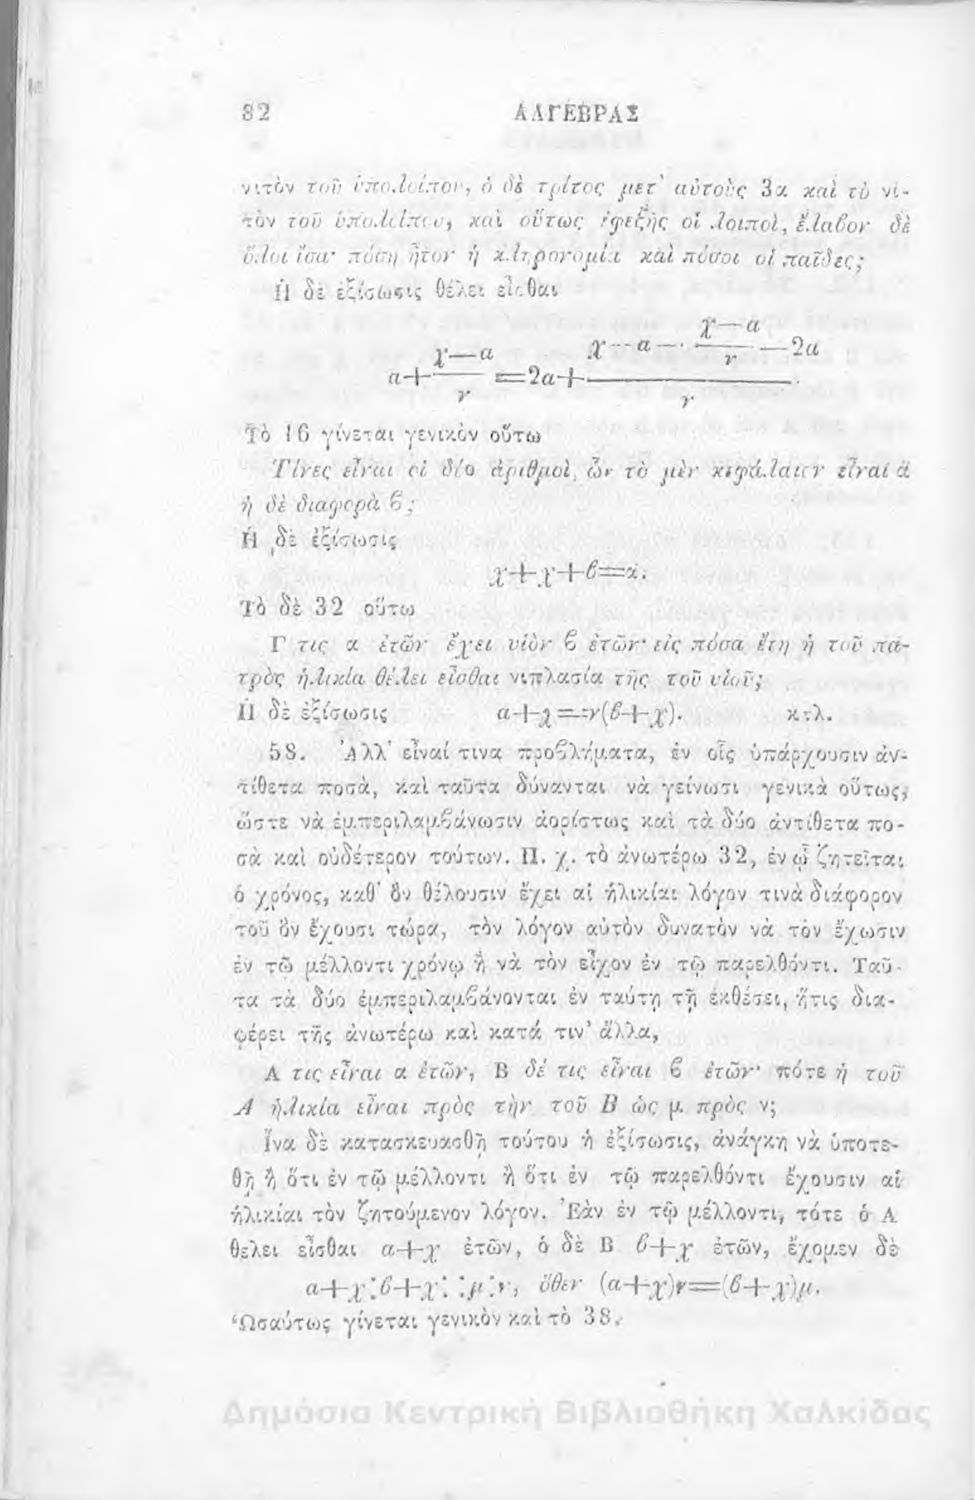 82 ΑΛΓΕΒΡΑΣ
νιτὸν τοῦ ὑπολοίπου, ὁ δὲ τρίτος μετ' αὐτοὺς 3α καὶ τὸ νι-
τὸν τοῦ ὑπολοίπου, καὶ οὕτως ἐφεξῆς οἱ λοιποὶ, ἔλαβον δὲ
ὅλοι ἴσα· πόση ἦτον ἡ κληρονομία καὶ πόσοι οἱ παῖδες;
Ἡ δὲ ἐξίσωσις θέλει εἶσθαι
α+(χ—α)/ν=2α+(χ—α—(χ—α)/ν—2α)/ν.
Τὸ 16 γίνεται γενικὸν οὕτω
Τίνες εἶναι οἱ δύο ἀριθμοὶ, ὧν τὸ μὲν κεφάλαιον εἶναι ά
ἡ δὲ διαφορὰ β;
Ἡ δὲ ἐξίσωσις
χ+χ+β=α.
Τὸ δὲ 32 οὕτω
Γ τις α ἐτῶν ἔχει υἱὸν β ἐτῶν· εἰς πόσα ἔτη ἡ τοῦ πα-
τρὸς ἡλικία θέλει εἶσθαι νιπλασία τῆς τοῦ υἱοῦ;
Ἡ δὲ ἐξίσωσις α+χ=ν(β+χ). κτλ.
58. Ἀλλ' εἶναί τινα προβλήματα, ἐν οἷς ὑπάρχουσιν ἀν-
τίθετα ποσὰ, καὶ ταῦτα δύνανται νὰ γείνωσι γενικὰ οὕτως,
ὥστε νὰ ἐμπεριλαμβάνωσιν ἀορίστως καὶ τὰ δύο ἀντίθετα πο-
σὰ καὶ οὐδέτερον τούτων. Π. χ. τὸ ἀνωτέρω 32, ἐν ᾧ ζητεῖται
ὁ χρόνος, καθ' ὃν θέλουσιν ἔχει αἱ ἡλικίαι λόγον τινὰ διάφορον
τοῦ ὃν ἔχουσι τώρα, τὸν λόγον αὐτὸν δυνατὸν νὰ τὸν ἔχωσιν
ἐν τῶ μέλλοντι χρόνῳ ἢ νὰ τὸν εἶχον ἐν τῷ παρελθόντι. Ταῦ-
τα τὰ δύο ἐμπεριλαμβάνονται ἐν ταύτῃ τῇ ἐκθέσει, ἥτις δια-
φέρει τῆς ἀνωτέρω καὶ κατά τιν' ἄλλα,
Α τις εἶναι α ἐτῶν, Β δέ τις εἶναι β ἐτῶν· πότε ἡ τοῦ
Α ἡλικία εἶναι πρὸς τὴν τοῦ Β ὡς μ πρὸς ν;
Ἵνα δὲ κατασκευασθῇ τούτου ἡ ἐξίσωσις, ἀνάγκη νὰ ὑποτε-
θῇ ἢ ὅτι ἐν τῷ μέλλοντι ἢ ὅτι ἐν τῷ παρελθόντι ἔχουσιν αἱ
ἡλικίαι τὸν ζητούμενον λόγον. Ἐὰν ἐν τῷ μέλλοντι, τότε ὁ Α
θελει εἶσθαι α+χ ἐτῶν, ὁ δὲ Β β+χ ἐτῶν, ἔχομεν δὲ
α+χ:β+χ: :μ:ν, ὅθεν (α+χ)ν=(β+χ)μ.
Ὡσαύτως γίνεται γενικὸν καὶ τὸ 38.
Δημόσια Κεντρική Βιβλιοθήκη Χαλκίδας